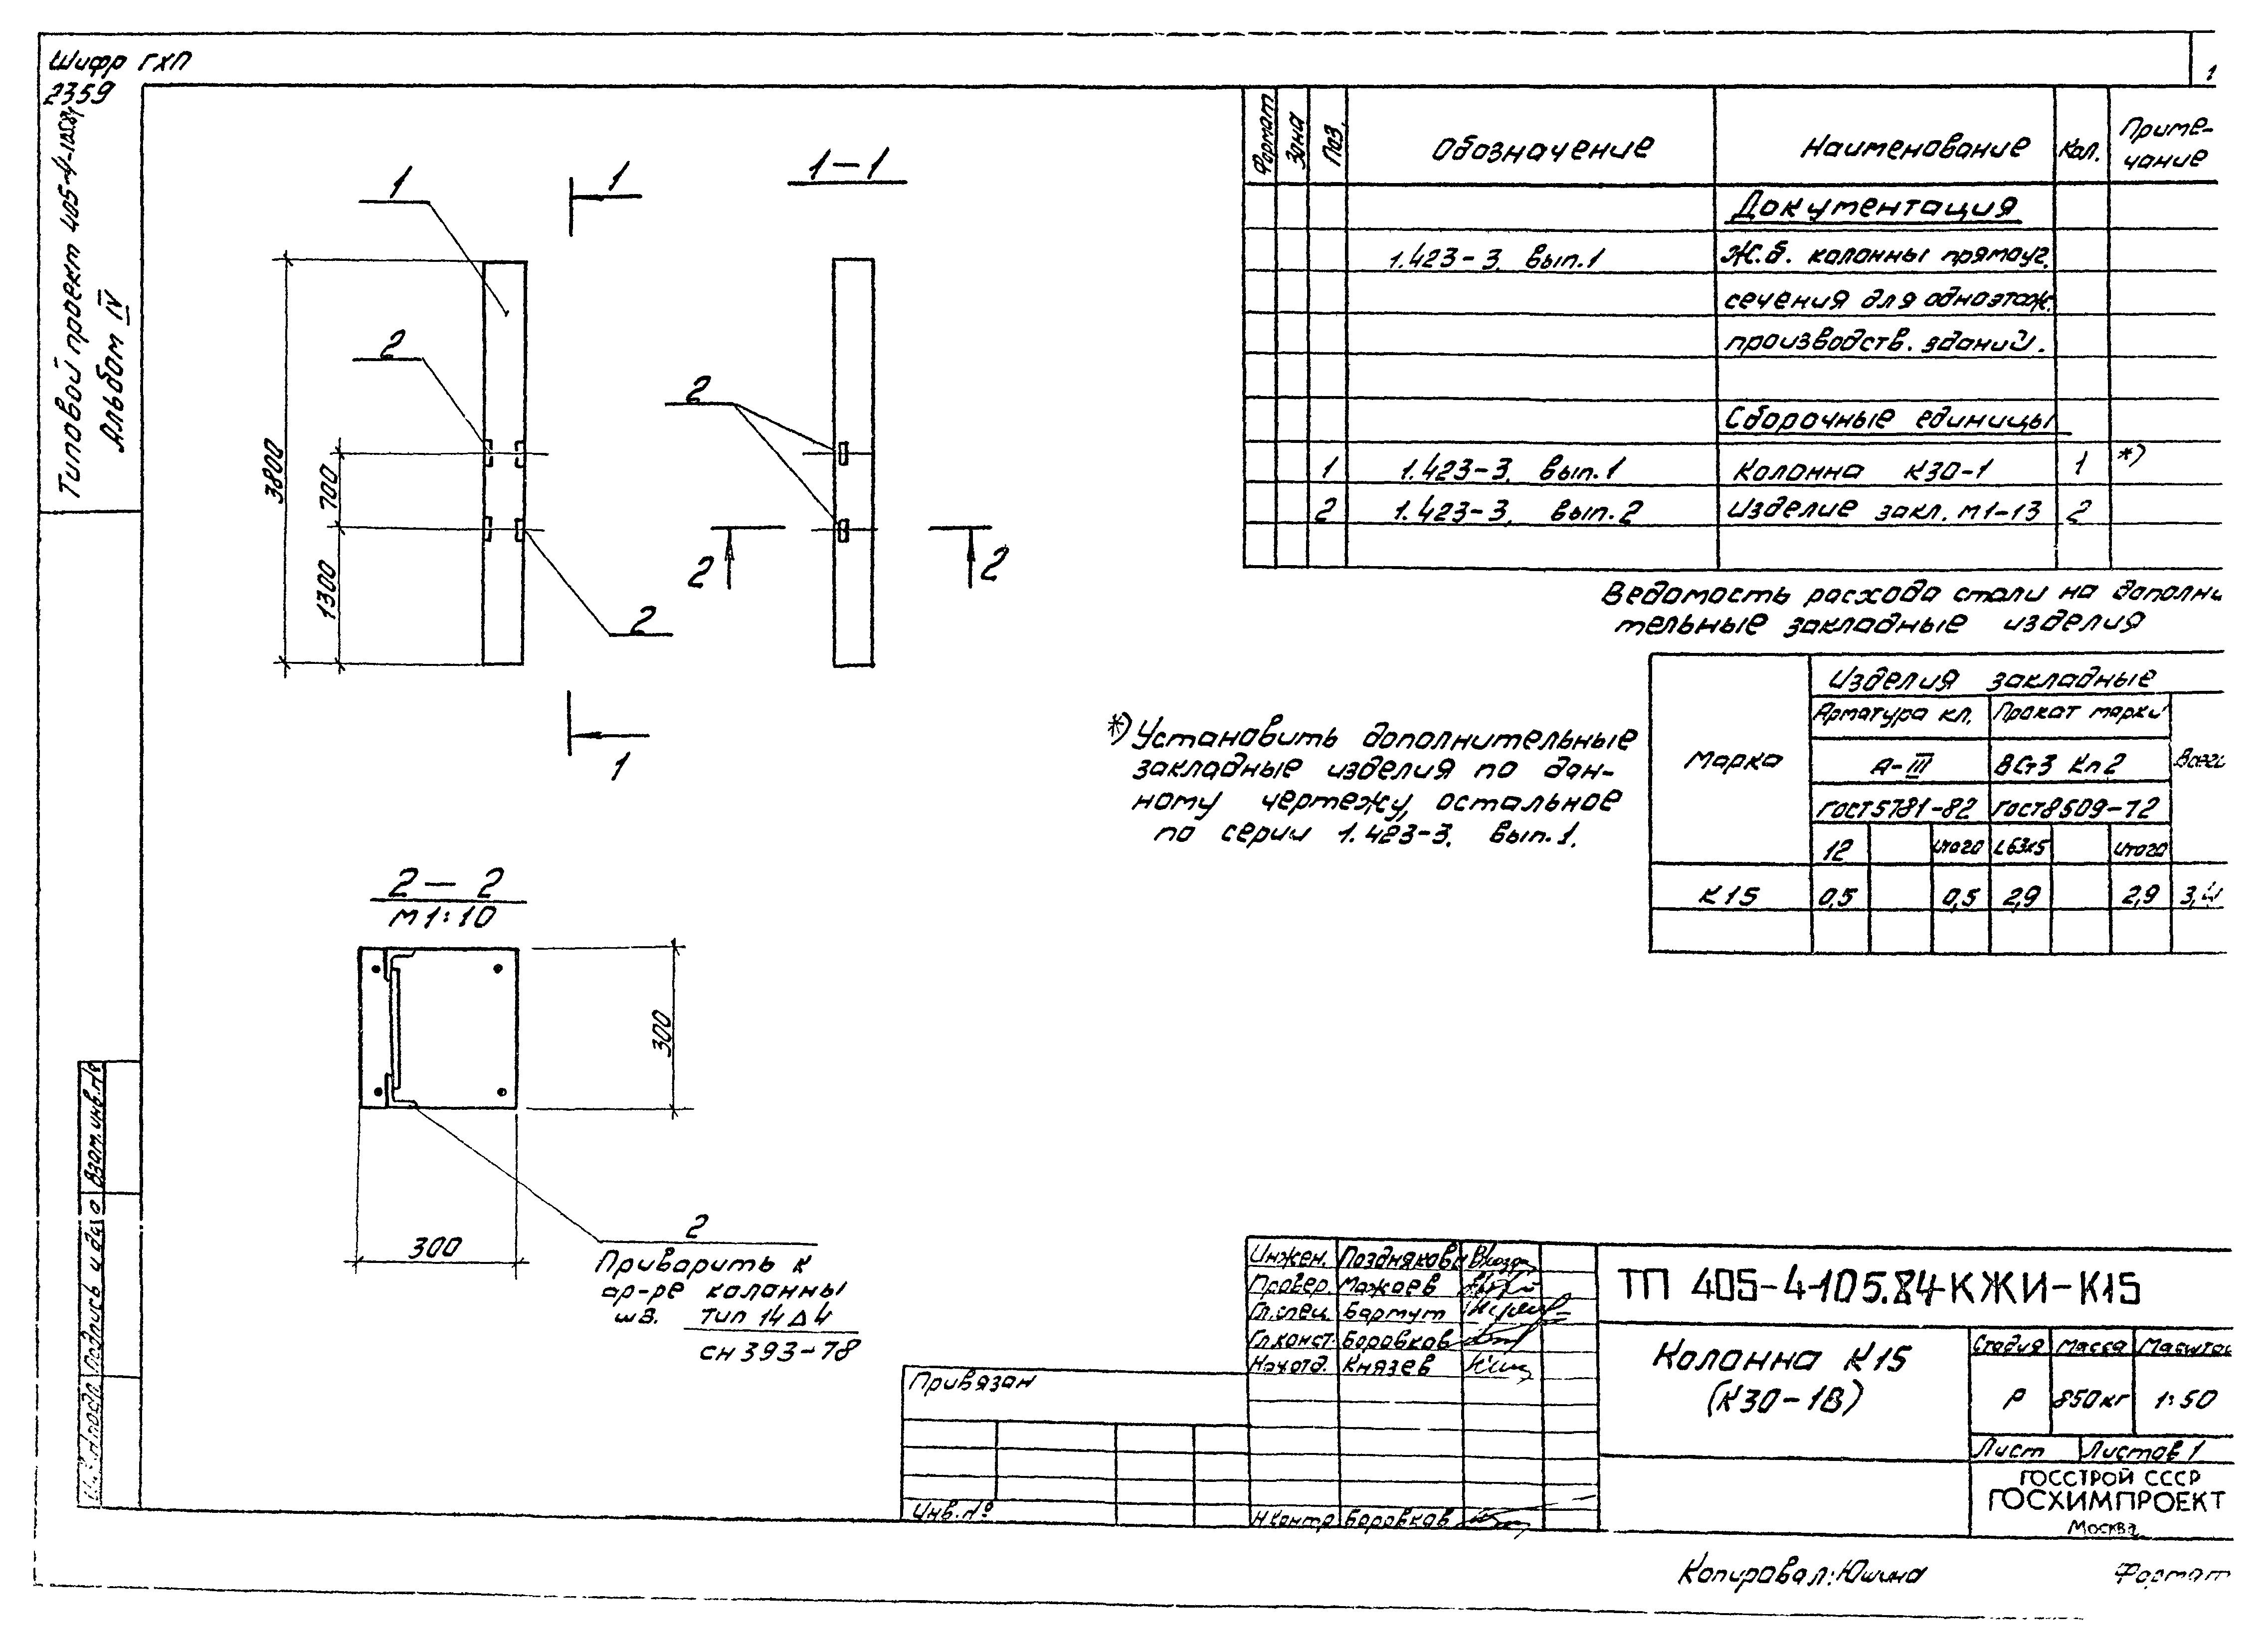 Шифр ГХП
2359
Типовой проект 405-4-105.84
Альбом IV
1
1
1
1-1
2
2
2
3800
700
1300
2
2
1
2-2
М1:10
300
300
2
Приварить к
ар-ре колонны
шв. тип 14Δ4
СН 393-78
Формат
Зона
Поз.
Обозначение
Наименование
Кол.
Приме-
чание
Документация
1.423-3. вып.1
Ж.б. колонны прямоуг.
сечения для одноэтаж.
производств. зданий.
Сборочные единицы
1 1.423-3. вып.1 Колонна К30-1 1 *)
2 1.423-3. вып.2 Изделие закл. М1-13 2
Ведомость расхода стали на дополни
тельные закладные изделия
*) Установить дополнительные
закладные изделия по дан-
ному чертежу, остальное
по серии 1.423-3. вып.1.
Марка
Изделия закладные
Арматура кл. Прокат марки
А-III ВСт3 Кп2 Всего
ГОСТ5781-82 ГОСТ8509-72
12 итого L63х5 итого
К15 0,5 0,5 2,9 2,9 3,4
Взам.инв.№
Подпись и дата
Инв.№подл.
Привязан
Инв.№
Инжен. Позднякова
Провер. Можаев
Гл.спец. Бартут
Гл.конст. Боровков
Нач.отд. Князев
Н.контр Боровков
ТП 405-4-105.84-КЖИ-К15
Колонна К15
(К30-1В)
Стадия Масса Масштаб
Р 850кг 1:50
Лист Листов 1
ГОССТРОЙ СССР
ГОСХИМПРОЕКТ
Москва
Копировал: Юшина
Формат